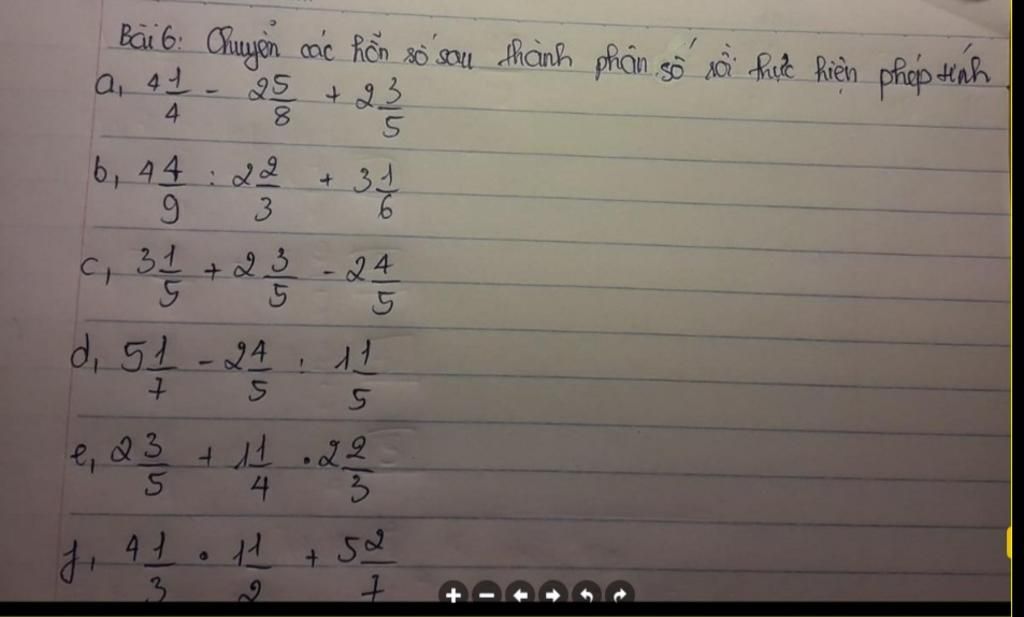 Bài 6: Chuyển các hỗn số sau thành phân số rồi thực hiện phép tính.
a, 4 1/4 - 2 5/8 + 2 3/5
b, 4 4/9 : 2 2/3 + 3 1/6
c, 3 1/5 + 2 3/5 - 2 4/5
d, 5 1/7 - 2 4/5 : 1 1/5
e, 2 3/5 + 1 1/4 . 2 2/3
f, 4 1/3 . 1 1/2 + 5 2/7